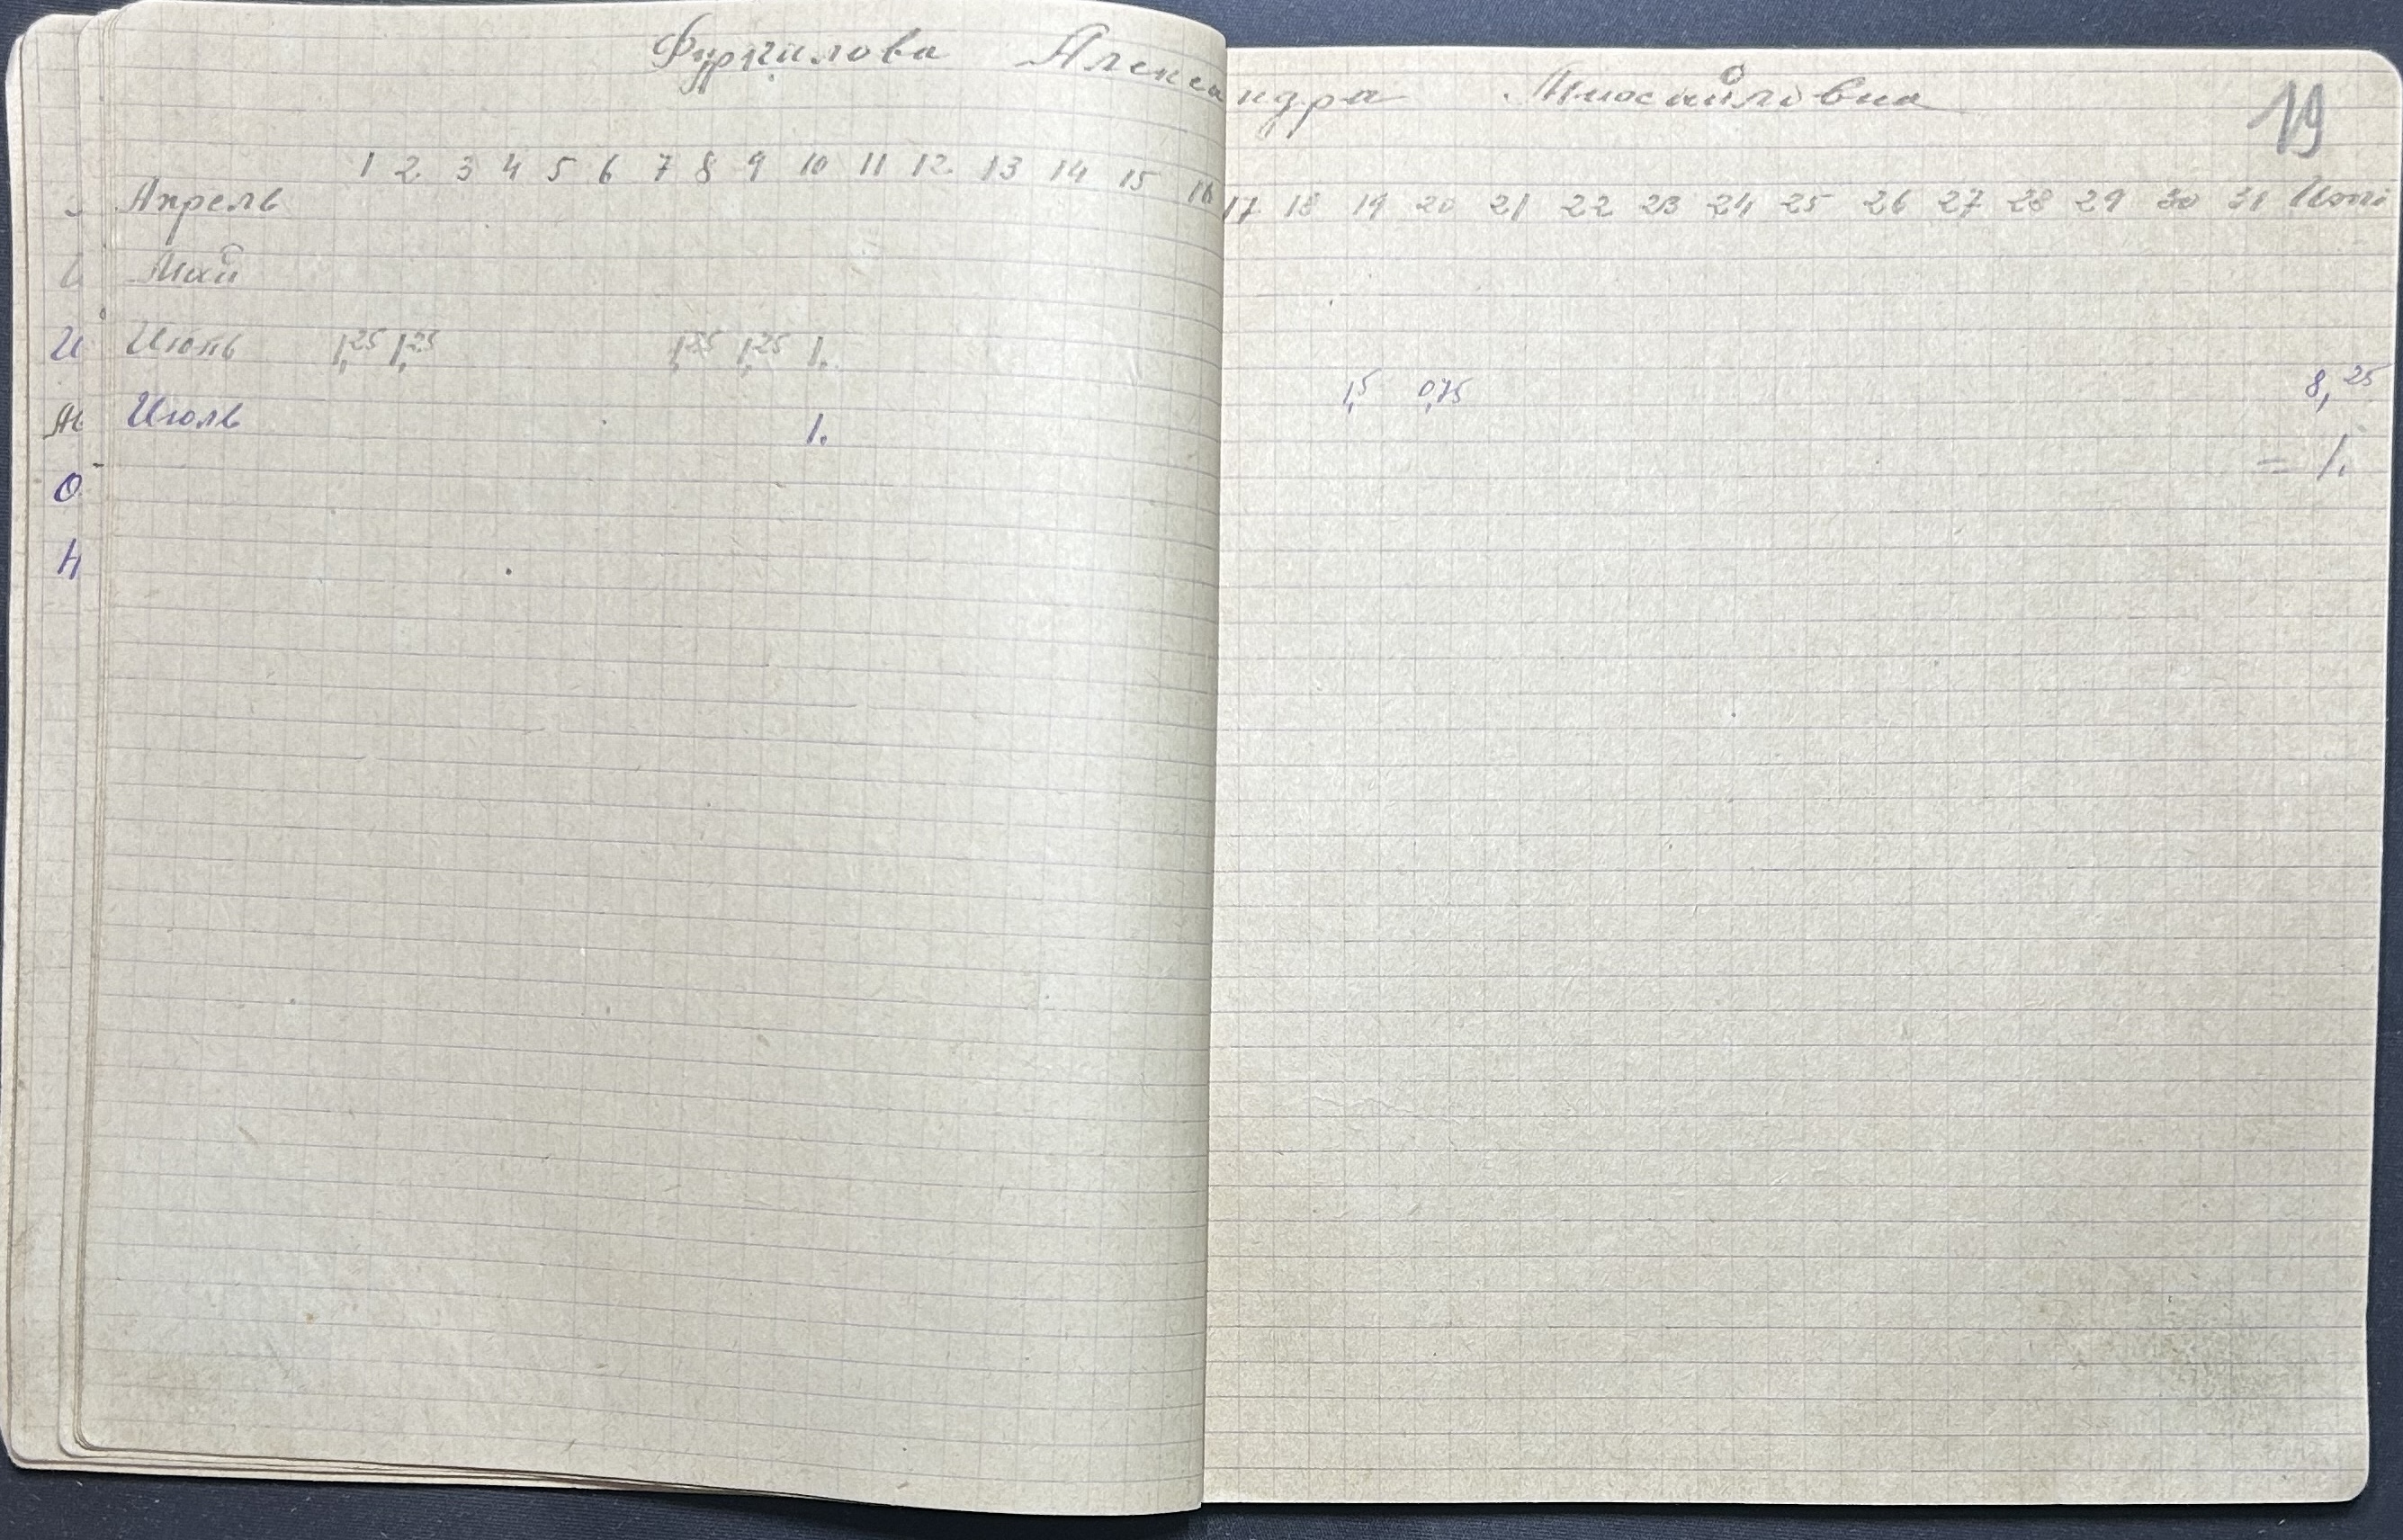 Фургилова Александра Михайловна
19
1 2. 3 4 5 6 7 8 9 10 11 12. 13 14 15 16 17. 18 19 20 21 22 23 24 25 26 27 28 29 30 31 Итог
Апрель
Май
Июнь 1,25 1,25 1,25 1,25 1. 1,5 0,75 8,25
Июль 1. = 1.